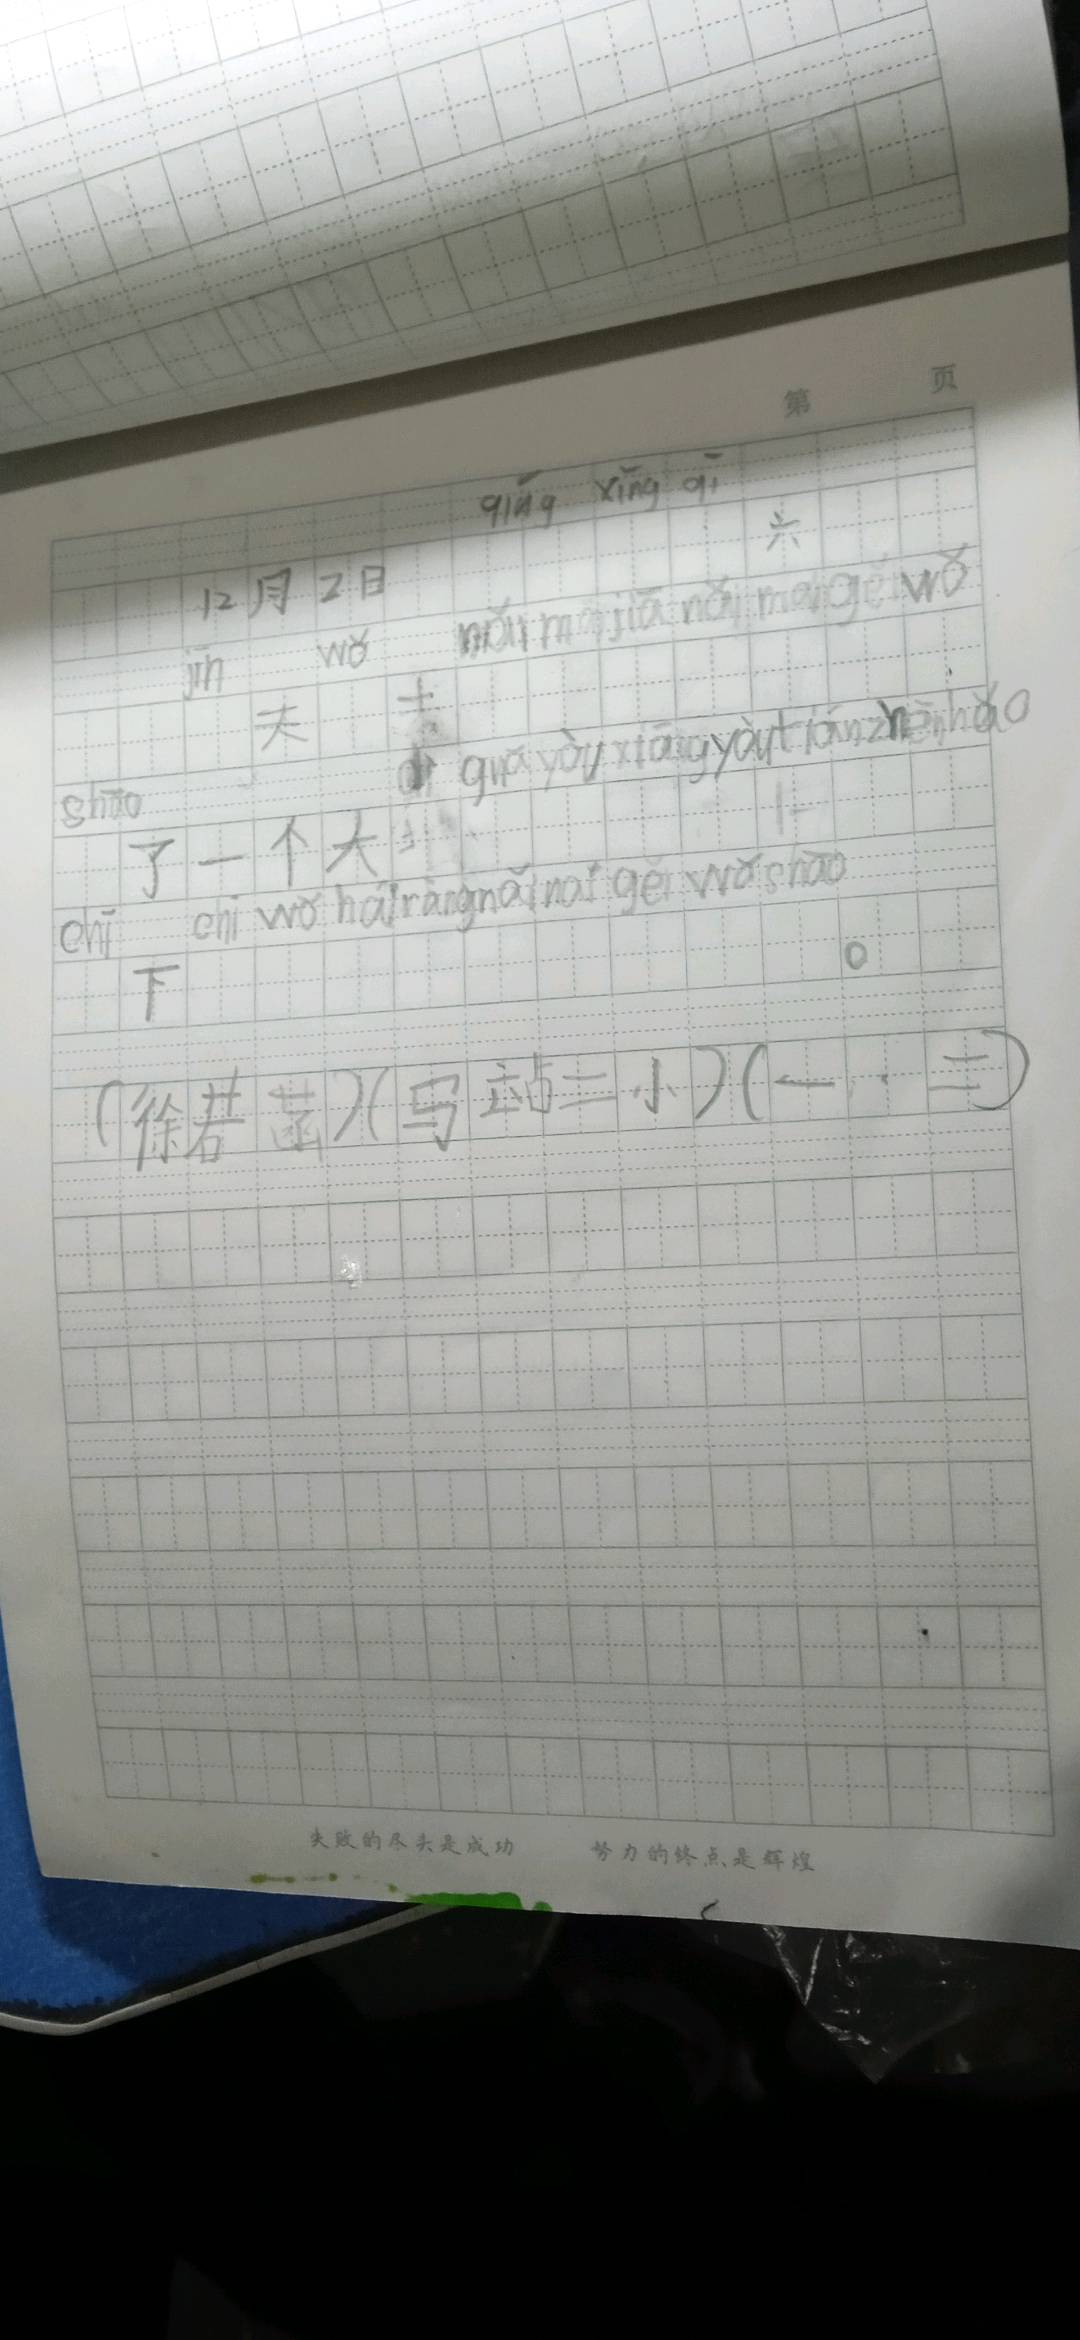 第 页
qíng xīng qī
12月2日 六
jīn wǒ nǎi nai jiā nǎi nai gěi wǒ
天 去
shāo dì guā yòu xiāng yòu tián zhēn hǎo
了一个大
chī chī wǒ hái ràng nǎi nai gěi wǒ shāo
下 。
(徐若菡)(马站二小)(一·二)
失败的尽头是成功 努力的终点是辉煌